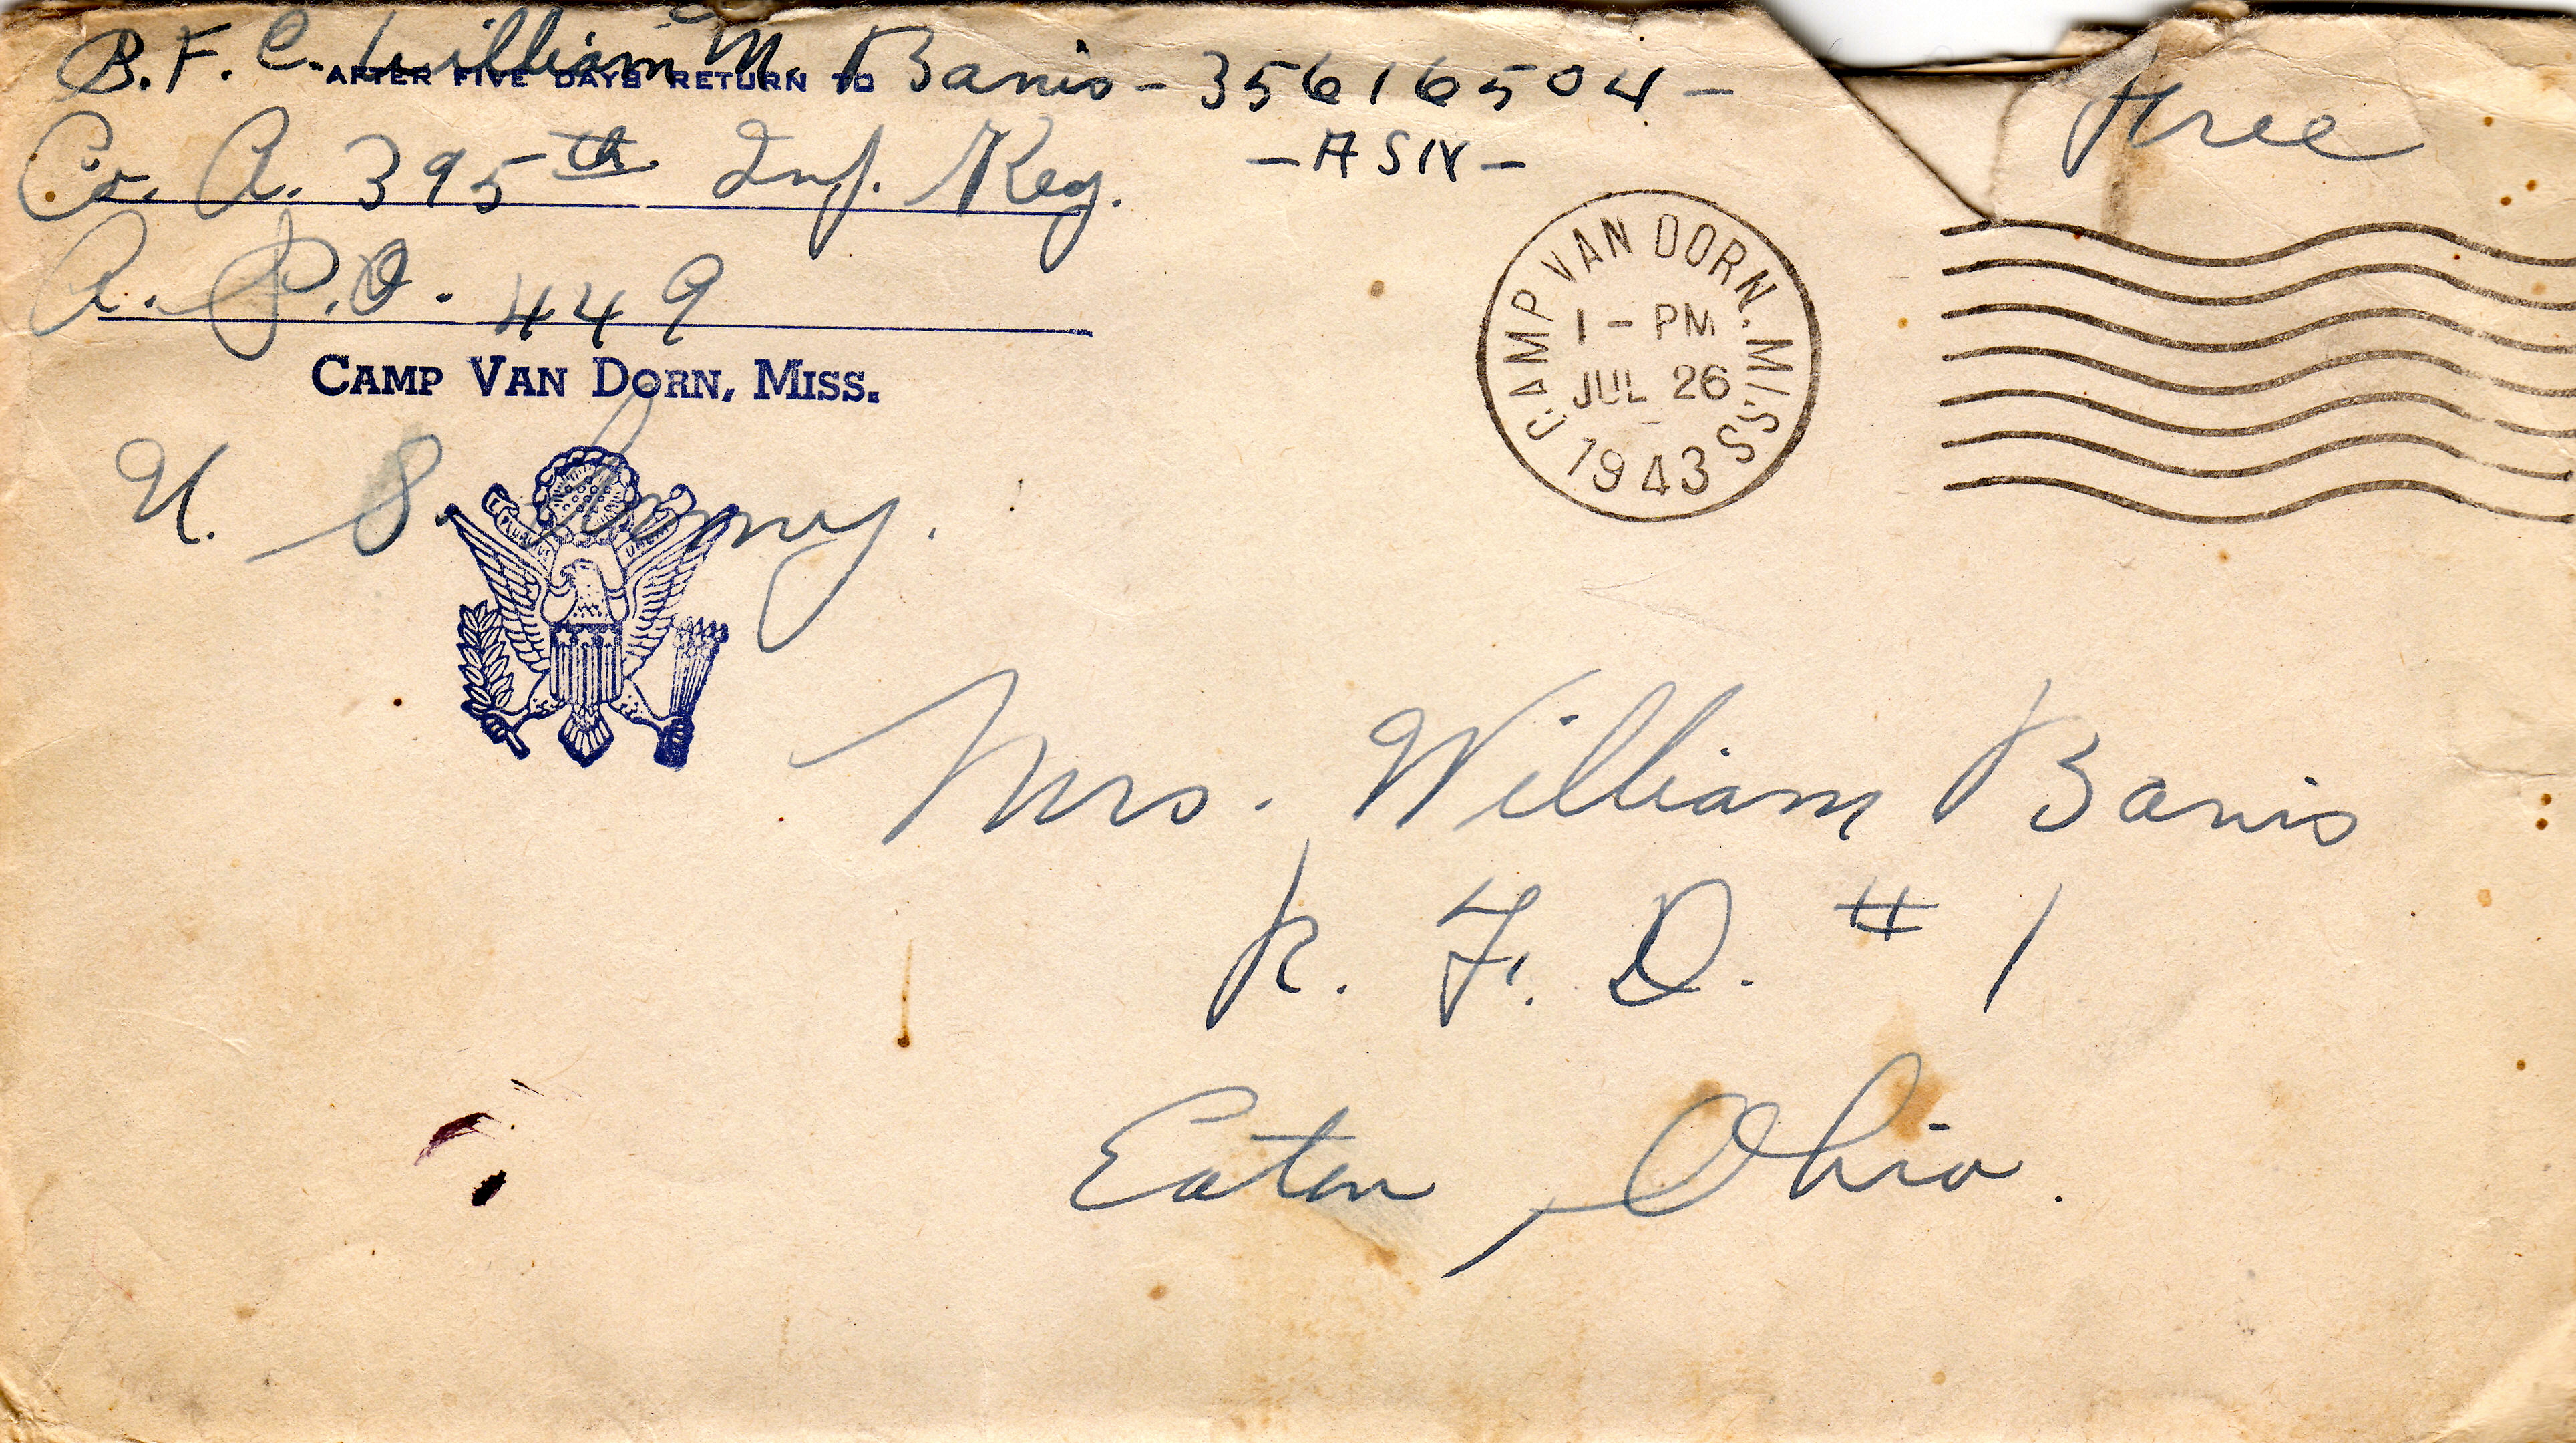 P.F.C. William M Banis - 35616504 -
AFTER FIVE DAYS RETURN TO
- ASN -
Free
Co. A. 395th Inf. Reg.
A.P.O. 449
CAMP VAN DORN, MISS.
U. S. Army.
CAMP VAN DORN. MISS
1 - PM
JUL 26
1943
E PLURIBUS UNUM
Mrs. William Banis
R. F. D. # 1
Eaton, Ohio.